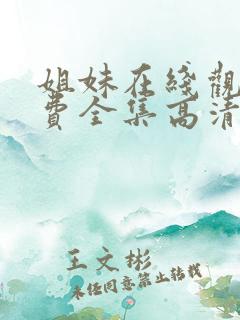 姐妹在綫觀
費全集高清
王文彬
未經同意禁止轉載